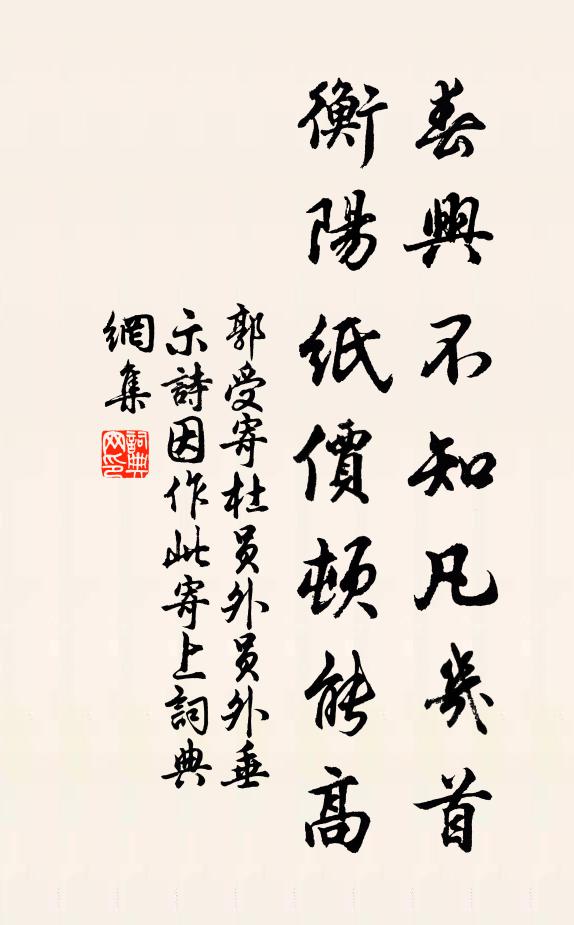 春興不知凡幾首
衡陽紙價頓能高
郭受寄杜員外員外垂
示詩因作此寄上詞典
網集
詞典
网印